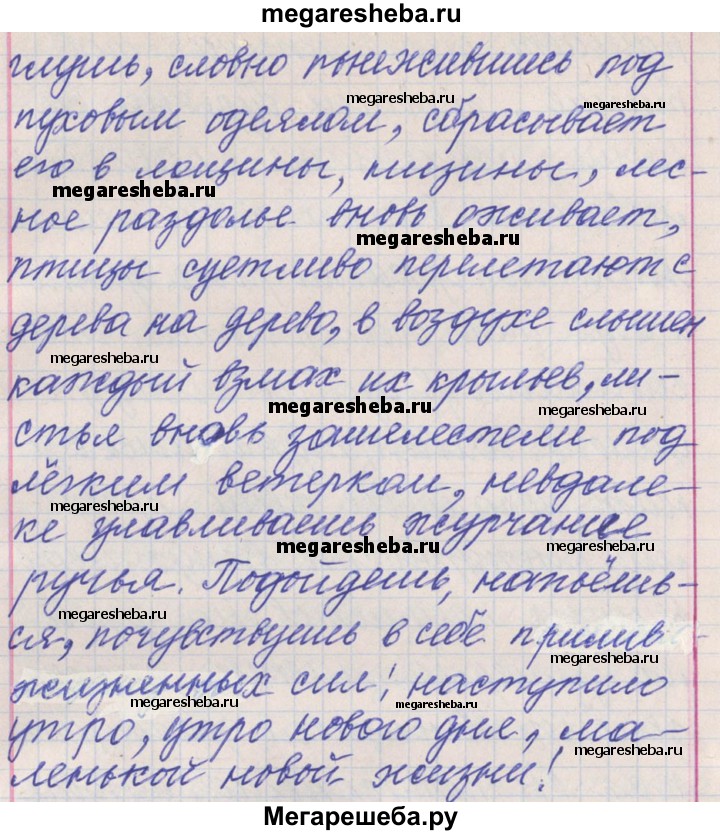 megaresheba.ru
глушь, словно понежившись под
megaresheba.ru
megaresheba.ru
пуховым одеялом, сбрасывает
его в лощины, низины, лес-
megaresheba.ru
ное раздолье вновь оживает,
megaresheba.ru
птицы суетливо перелетают с
дерева на дерево, в воздухе слышен
megaresheba.ru
каждый взмах их крыльев, ли-
megaresheba.ru
megaresheba.ru
стья вновь зашелестели под
лёгким ветерком, невдале-
megaresheba.ru
ке улавливаешь журчание
megaresheba.ru
megaresheba.ru
ручья. Подойдешь, напьёшь-
megaresheba.ru
ся, почувствуешь в себе прилив
megaresheba.ru
жизненных сил! наступило
megaresheba.ru
megaresheba.ru
утро, утро нового дня, ма-
megaresheba.ru
ленькой новой жизни!
Мегарешеба.ру